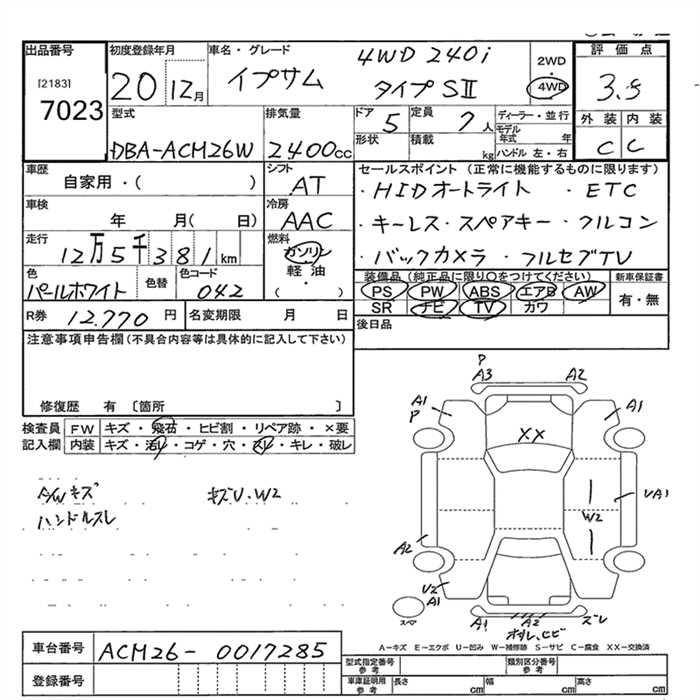 出品番号
[2183]
7023
初度登録年月
20 12月
車名・グレード
イプサム
4WD 240i
タイプSⅡ
2WD
・
4WD
評価点
3.5
外装 内装
C C
型式
DBA-ACM26W
排気量
2400cc
ドア
5
定員
7人
形状
積載
kg
ディーラー・並行
モデル年式 年
ハンドル 左・右
車歴
自家用・( )
シフト
AT
車検
年 月( 日)
冷房
AAC
走行
12万5千381km
燃料
ガソリン
軽油
( ・ )
色
パールホワイト
色替
色コード
042
R券 12.770円
名変期限 月 日
セールスポイント(正常に機能するものに限ります)
・HIDオートライト ・ETC
・キーレス・スペアキー・フルコン
・バックカメラ・フルセグTV
装備品(純正品に限り〇をつけてください)
PS PW ABS エアB AW
SR ナビ TV カワ
新車保証書
有・無
後日品
注意事項申告欄(不具合内容等は具体的に記入して下さい)
修復歴 有 〔箇所 〕
検査員記入欄
FW キズ・飛石・ヒビ割・リペア跡・×要
内装 キズ・汚レ・コゲ・穴・スレ・キレ・破レ
A/Wキズ
キズU.W2
ハンドルスレ
P
A3 A2
A1
P
A1
XX
W2
UA1
A2
U2
A1
A1 A2 ズレ
スペア
A-キズ E-エクボ U-凹み W-補修跡 S-サビ C-腐食 XX-交換済
車台番号 ACM26-0017285
登録番号
型式指定番号
参考
類別区分番号
参考
車庫証明用
参考
長さ cm 幅 cm 高さ cm